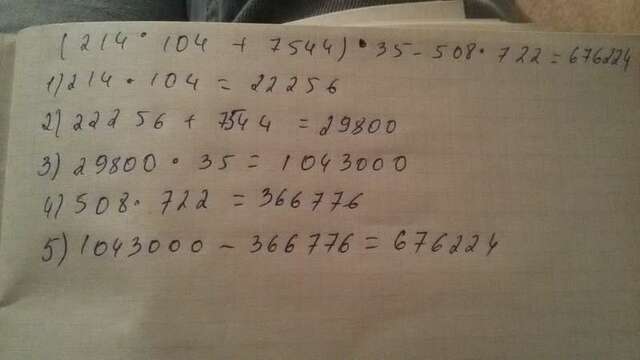 (214 · 104 + 7544) · 35 - 508 · 722 = 676224
1) 214 · 104 = 22256
2) 22256 + 7544 = 29800
3) 29800 · 35 = 1043000
4) 508 · 722 = 366776
5) 1043000 - 366776 = 676224